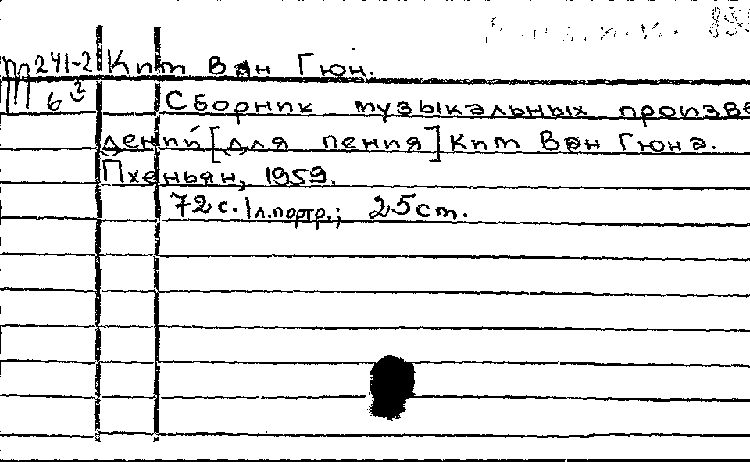 П241-2 Ким Ван Гюн.
6 3 Сборник музыкальных произве
дений [для пения] Ким Ван Гюна.
Пхеньян, 1959.
72 с. 1 л.портр.; 25 см.